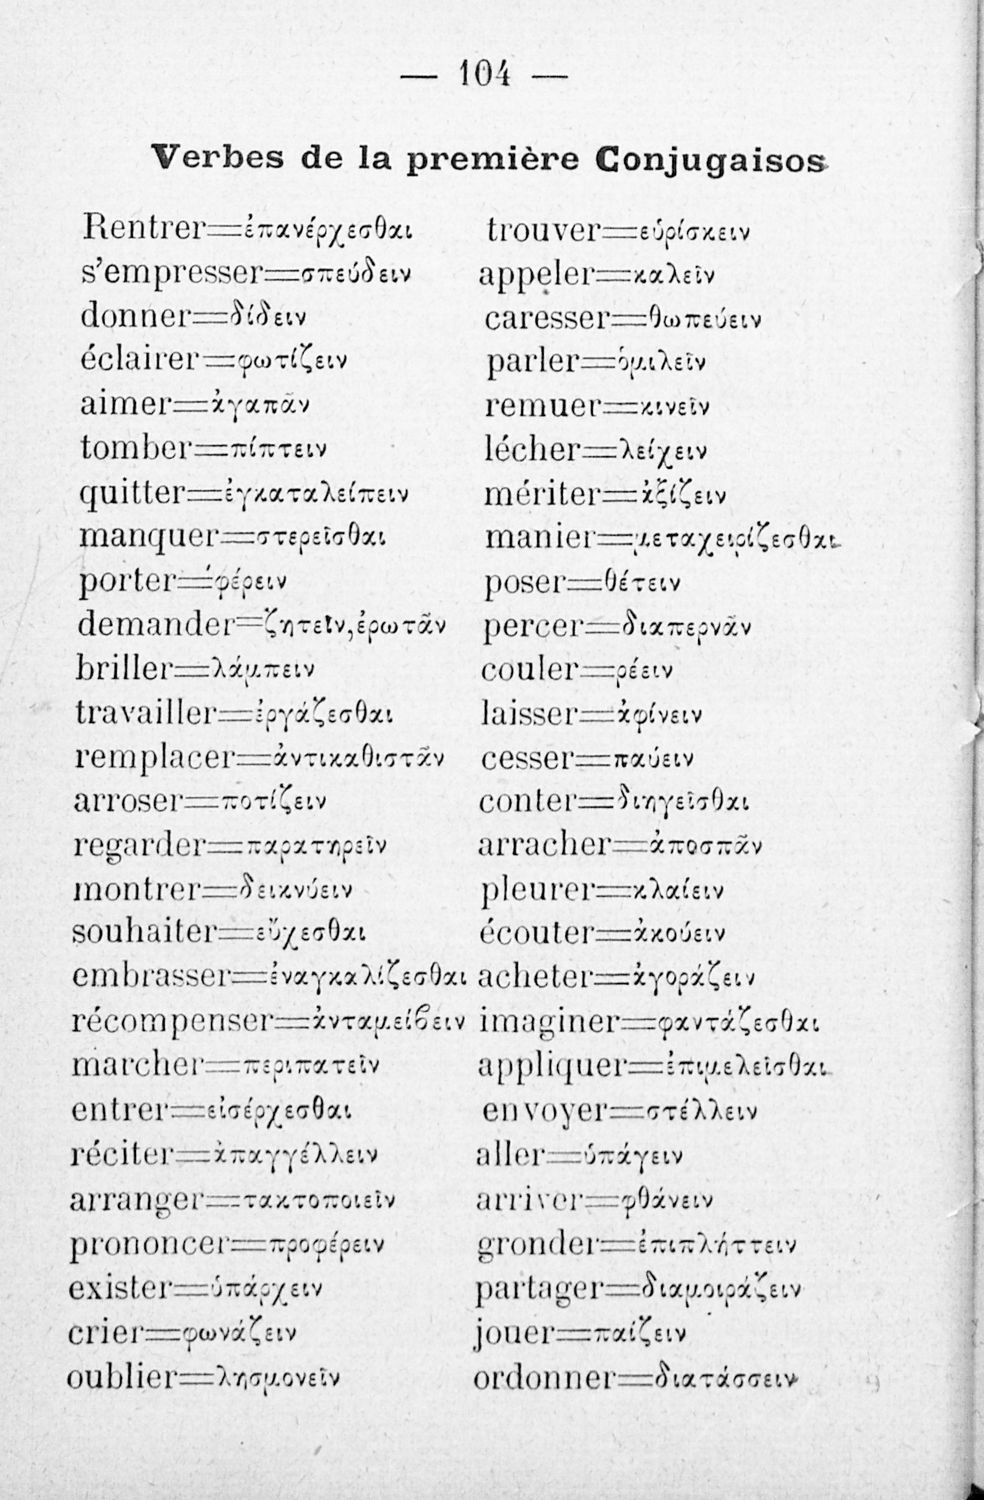 — 104 —
Verbes de la première Conjugaisos
Rentrer=ἐπανέρχεσθαι
s'empresser=σπεύδειν
donner=δίδειν
éclairer=φωτίζειν
aimer=ἀγαπᾶν
tomber=πίπτειν
quitter=ἐγκαταλείπειν
manquer=στερεῖσθαι
porter=φέρειν
demander=ζητεῖν,ἐρωτᾶν
briller=λάμπειν
travailler=ἐργάζεσθαι
remplacer=ἀντικαθιστᾶν
arroser=ποτίζειν
regarder=παρατηρεῖν
montrer=δεικνύειν
souhaiter=εὔχεσθαι
embrasser=ἐναγκαλίζεσθαι
récompenser=ἀνταμείϐειν
marcher=περιπατεῖν
entrer=εἰσέρχεσθαι
réciter=ἀπαγγέλλειν
arranger=τακτοποιεῖν
prononcer=προφέρειν
exister=ὑπάρχειν
crier=φωνάζειν
oublier=λησμονεῖν
trouver=εὑρίσκειν
appeler=καλεῖν
caresser=θωπεύειν
parler=ὁμιλεῖν
remuer=κινεῖν
lécher=λείχειν
mériter=ἀξίζειν
manier=μεταχειρίζεσθαι
poser=θέτειν
percer=διαπερνᾶν
couler=ρέειν
laisser=ἀφίνειν
cesser=παύειν
conter=διηγεῖσθαι
arracher=ἀποσπᾶν
pleurer=κλαίειν
écouter=ἀκούειν
acheter=ἀγοράζειν
imaginer=φαντάζεσθαι
appliquer=ἐπιμελεῖσθαι
envoyer=στέλλειν
aller=ὑπάγειν
arriver=φθάνειν
gronder=ἐπιπλήττειν
partager=διαμοιράζειν
jouer=παίζειν
ordonner=διατάσσειν